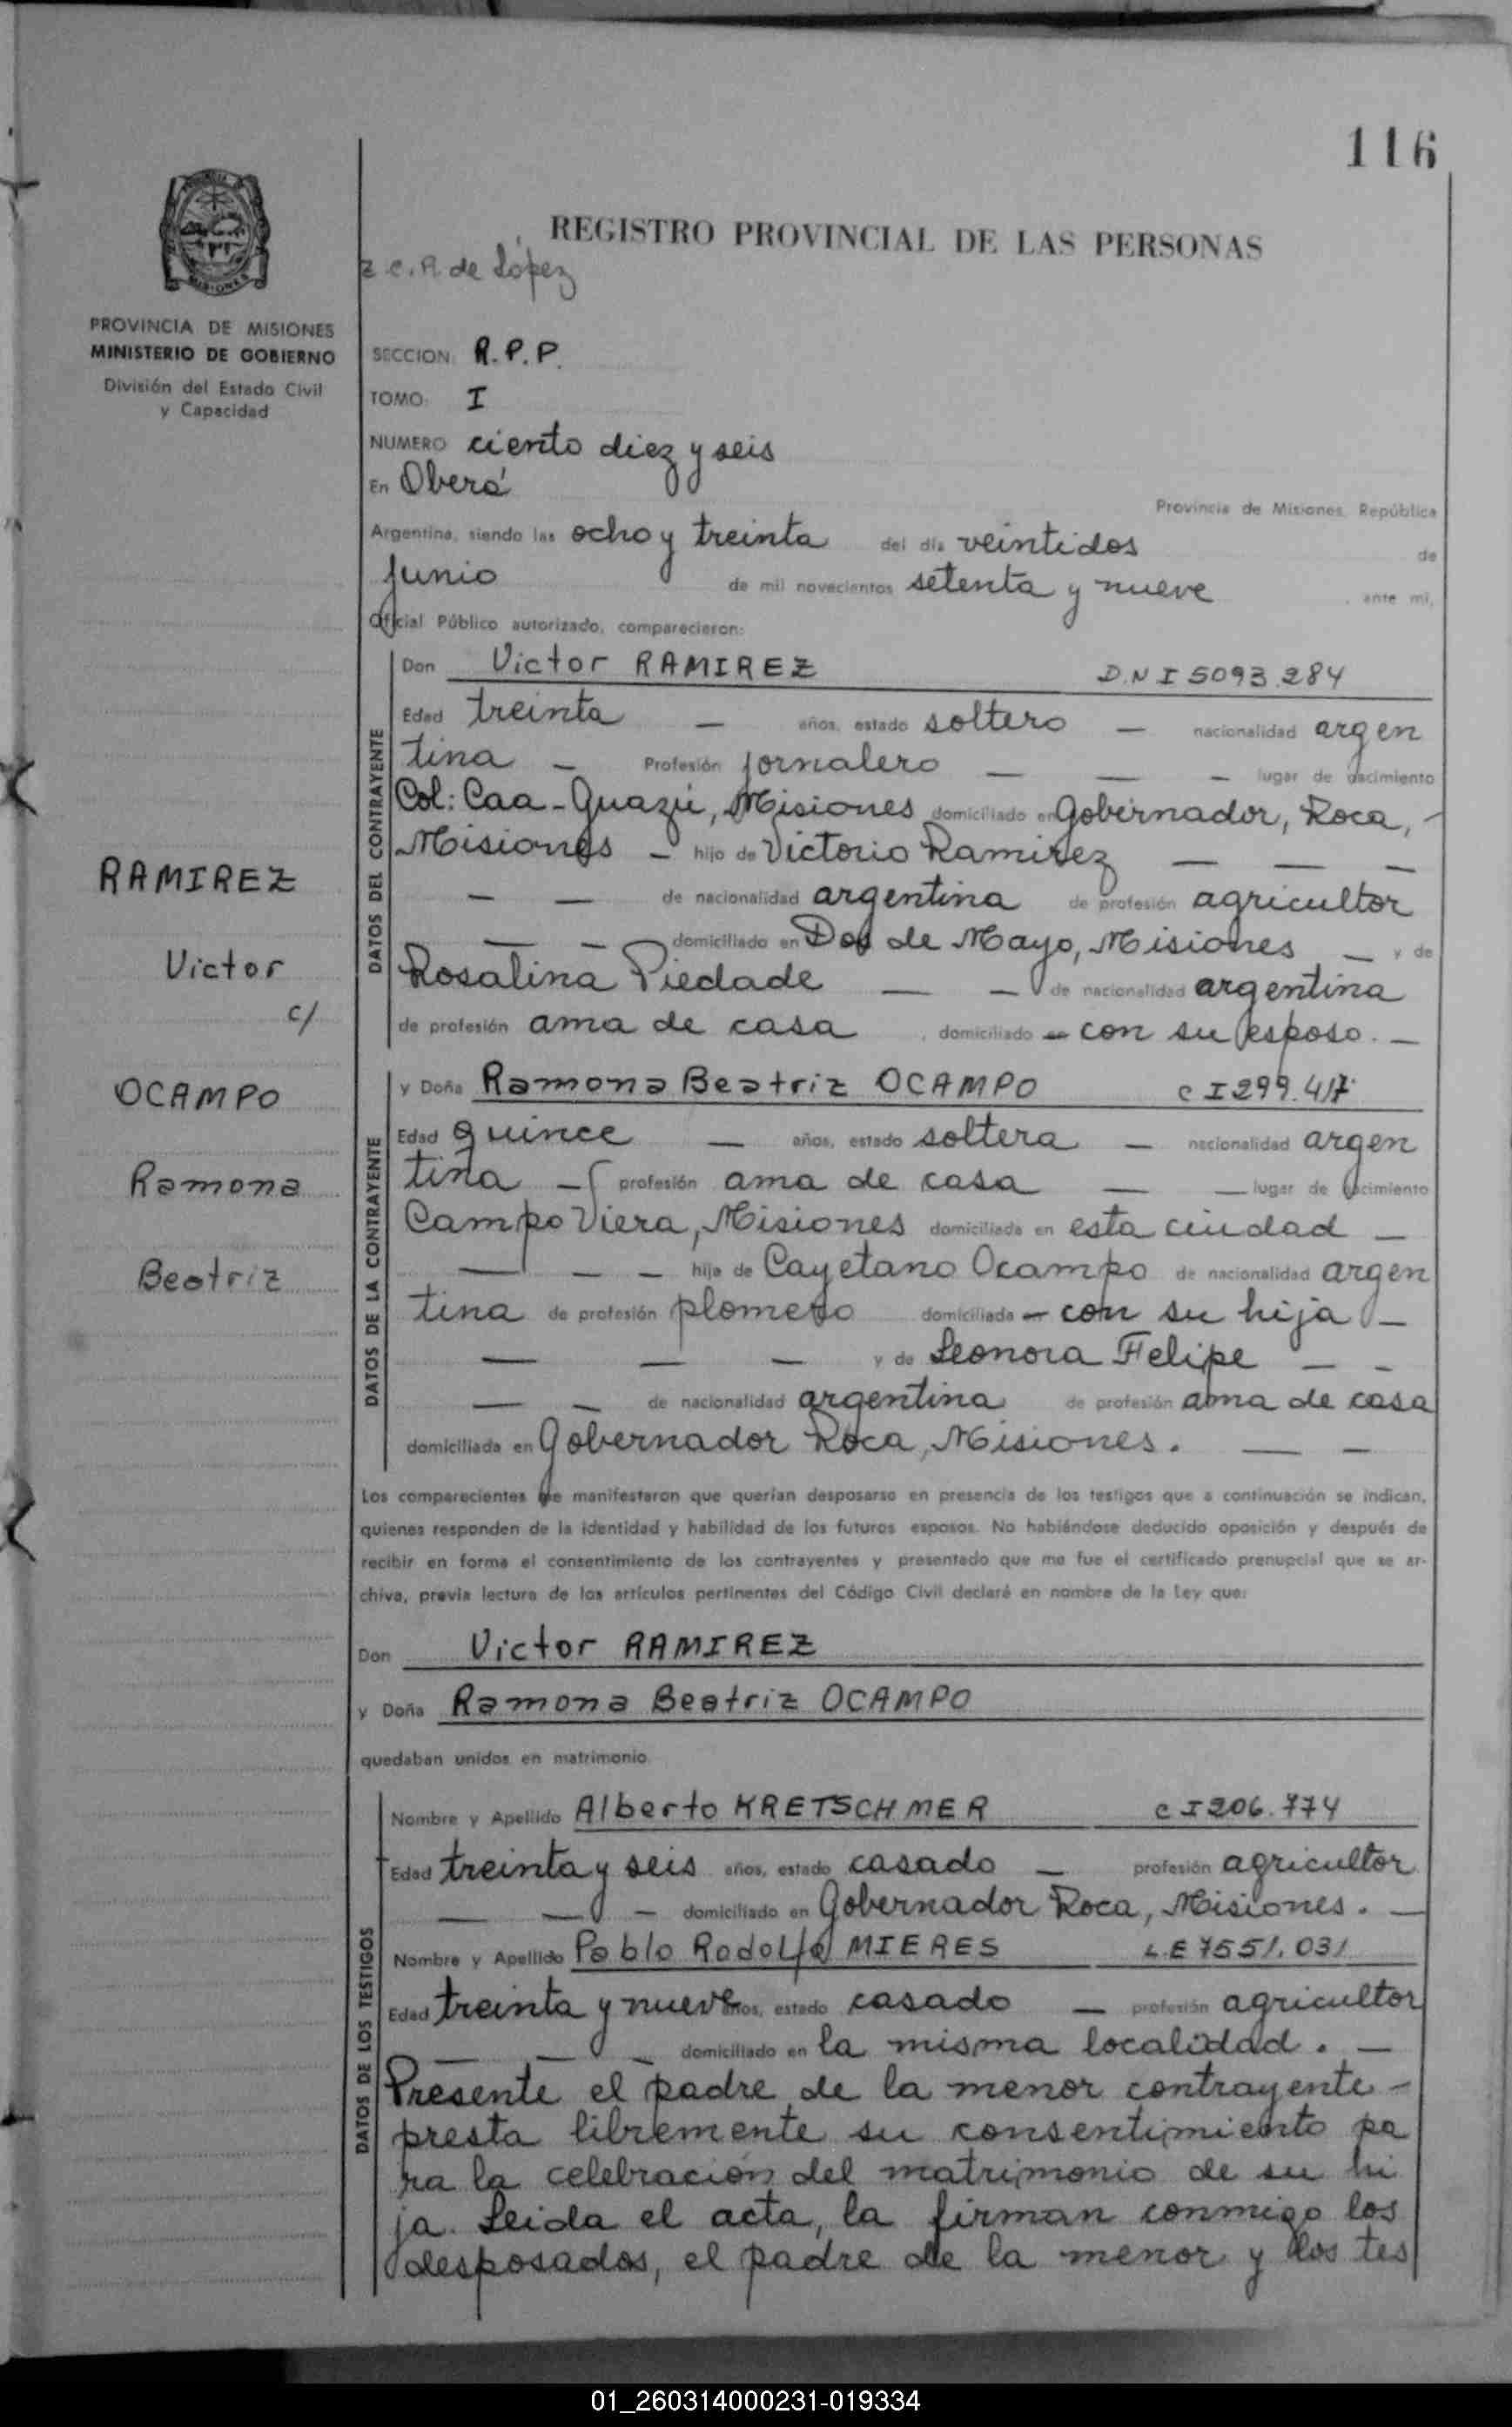 116
REGISTRO PROVINCIAL DE LAS PERSONAS
Z C. R. de López
MISIONES
PROVINCIA DE MISIONES
MINISTERIO DE GOBIERNO
División del Estado Civil
y Capacidad
SECCION R. P. P.
TOMO: I
NUMERO ciento diez y seis
En Oberá
Provincia de Misiones, República
Argentina, siendo las ocho y treinta del día veintidos de
Junio de mil novecientos setenta y nueve, ante mi,
Oficial Público autorizado, comparecieron:
Don Victor RAMIREZ D.N I 5093.284
DATOS DEL CONTRAYENTE
Edad treinta — años, estado soltero — nacionalidad argen
tina — Profesión jornalero — — — lugar de nacimiento
Col: Caa-Guazú, Misiones domiciliado en Gobernador, Roca, -
Misiones — hijo de Victorio Ramirez — — —
— — de nacionalidad argentina de profesión agricultor
— — domiciliado en Dos de Mayo, Misiones — y de
Rosalina Piedade — — de nacionalidad argentina
de profesión ama de casa, domiciliado en con su esposo. —
RAMIREZ
Victor
c/
OCAMPO
Ramona
Beatriz
y Doña Ramona Beatriz OCAMPO C I 299.417
DATOS DE LA CONTRAYENTE
Edad quince — años, estado soltera — nacionalidad argen
tina — profesión ama de casa — — lugar de nacimiento
Campo Viera, Misiones domiciliada en esta ciudad —
— — — hija de Cayetano Ocampo de nacionalidad argen
tina de profesión plomero domiciliada en con su hija —
— — — y de Leonora Felipe — —
— — de nacionalidad argentina de profesión ama de casa
domiciliada en Gobernador Roca, Misiones. — —
Los comparecientes me manifestaron que querían desposarse en presencia de los testigos que a continuación se indican,
quienes responden de la identidad y habilidad de los futuros esposos. No habiéndose deducido oposición y después de
recibir en forma el consentimiento de los contrayentes y presentado que me fue el certificado prenupcial que se ar-
chiva, previa lectura de los artículos pertinentes del Código Civil declaré en nombre de la Ley que:
Don Victor RAMIREZ
y Doña Ramona Beatriz OCAMPO
quedaban unidos en matrimonio.
DATOS DE LOS TESTIGOS
Nombre y Apellido Alberto KRETSCHMER C I 206.774
Edad treinta y seis años, estado casado — profesión agricultor
— — — domiciliado en Gobernador Roca, Misiones. —
Nombre y Apellido Pablo Rodolfo MIERES L.E 7551.031
Edad treinta y nueve años, estado casado — profesión agricultor
— — — domiciliado en la misma localidad. —
Presente el padre de la menor contrayente -
presta libremente su consentimiento pa
ra la celebración del matrimonio de su hi
ja. Leida el acta, la firman conmigo los
desposados, el padre de la menor y los tes
01_260314000231-019334